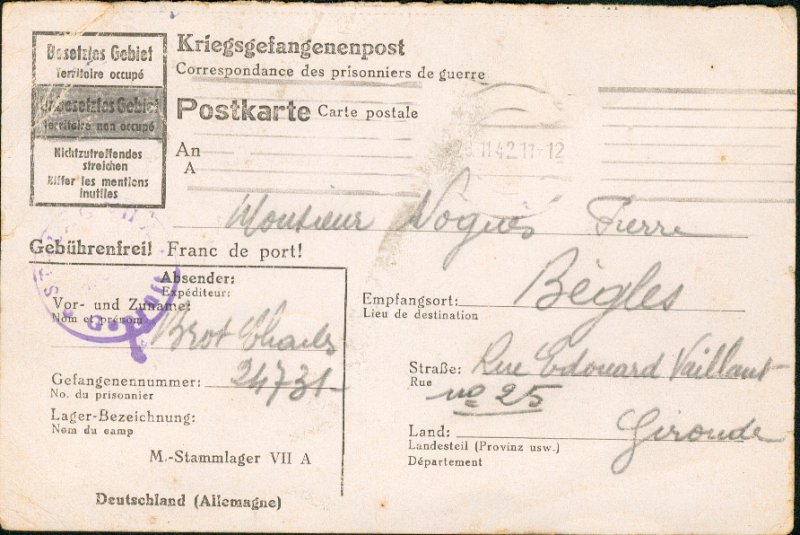 Besetztes Gebiet
Territoire occupé
Unbesetztes Gebiet
Territoire non occupé
Nichtzutreffendes
streichen
Biffer les mentions
inutiles
Kriegsgefangenenpost
Correspondance des prisonniers de guerre
Postkarte Carte postale
11.42.11-12
An
A
Monsieur Noguès Pierre
Gebührenfrei! Franc de port!
Absender:
Expéditeur:
Vor- und Zuname:
Nom et prénom
Brot Charles
Gefangenennummer:
No. du prisonnier
24731
Lager-Bezeichnung:
Nom du camp
M.-Stammlager VII A
Deutschland (Allemagne)
Empfangsort:
Lieu de destination
Bègles
Straße:
Rue
Rue Edouard Vaillant
no 25
Land:
Landesteil (Provinz usw.)
Département
Gironde